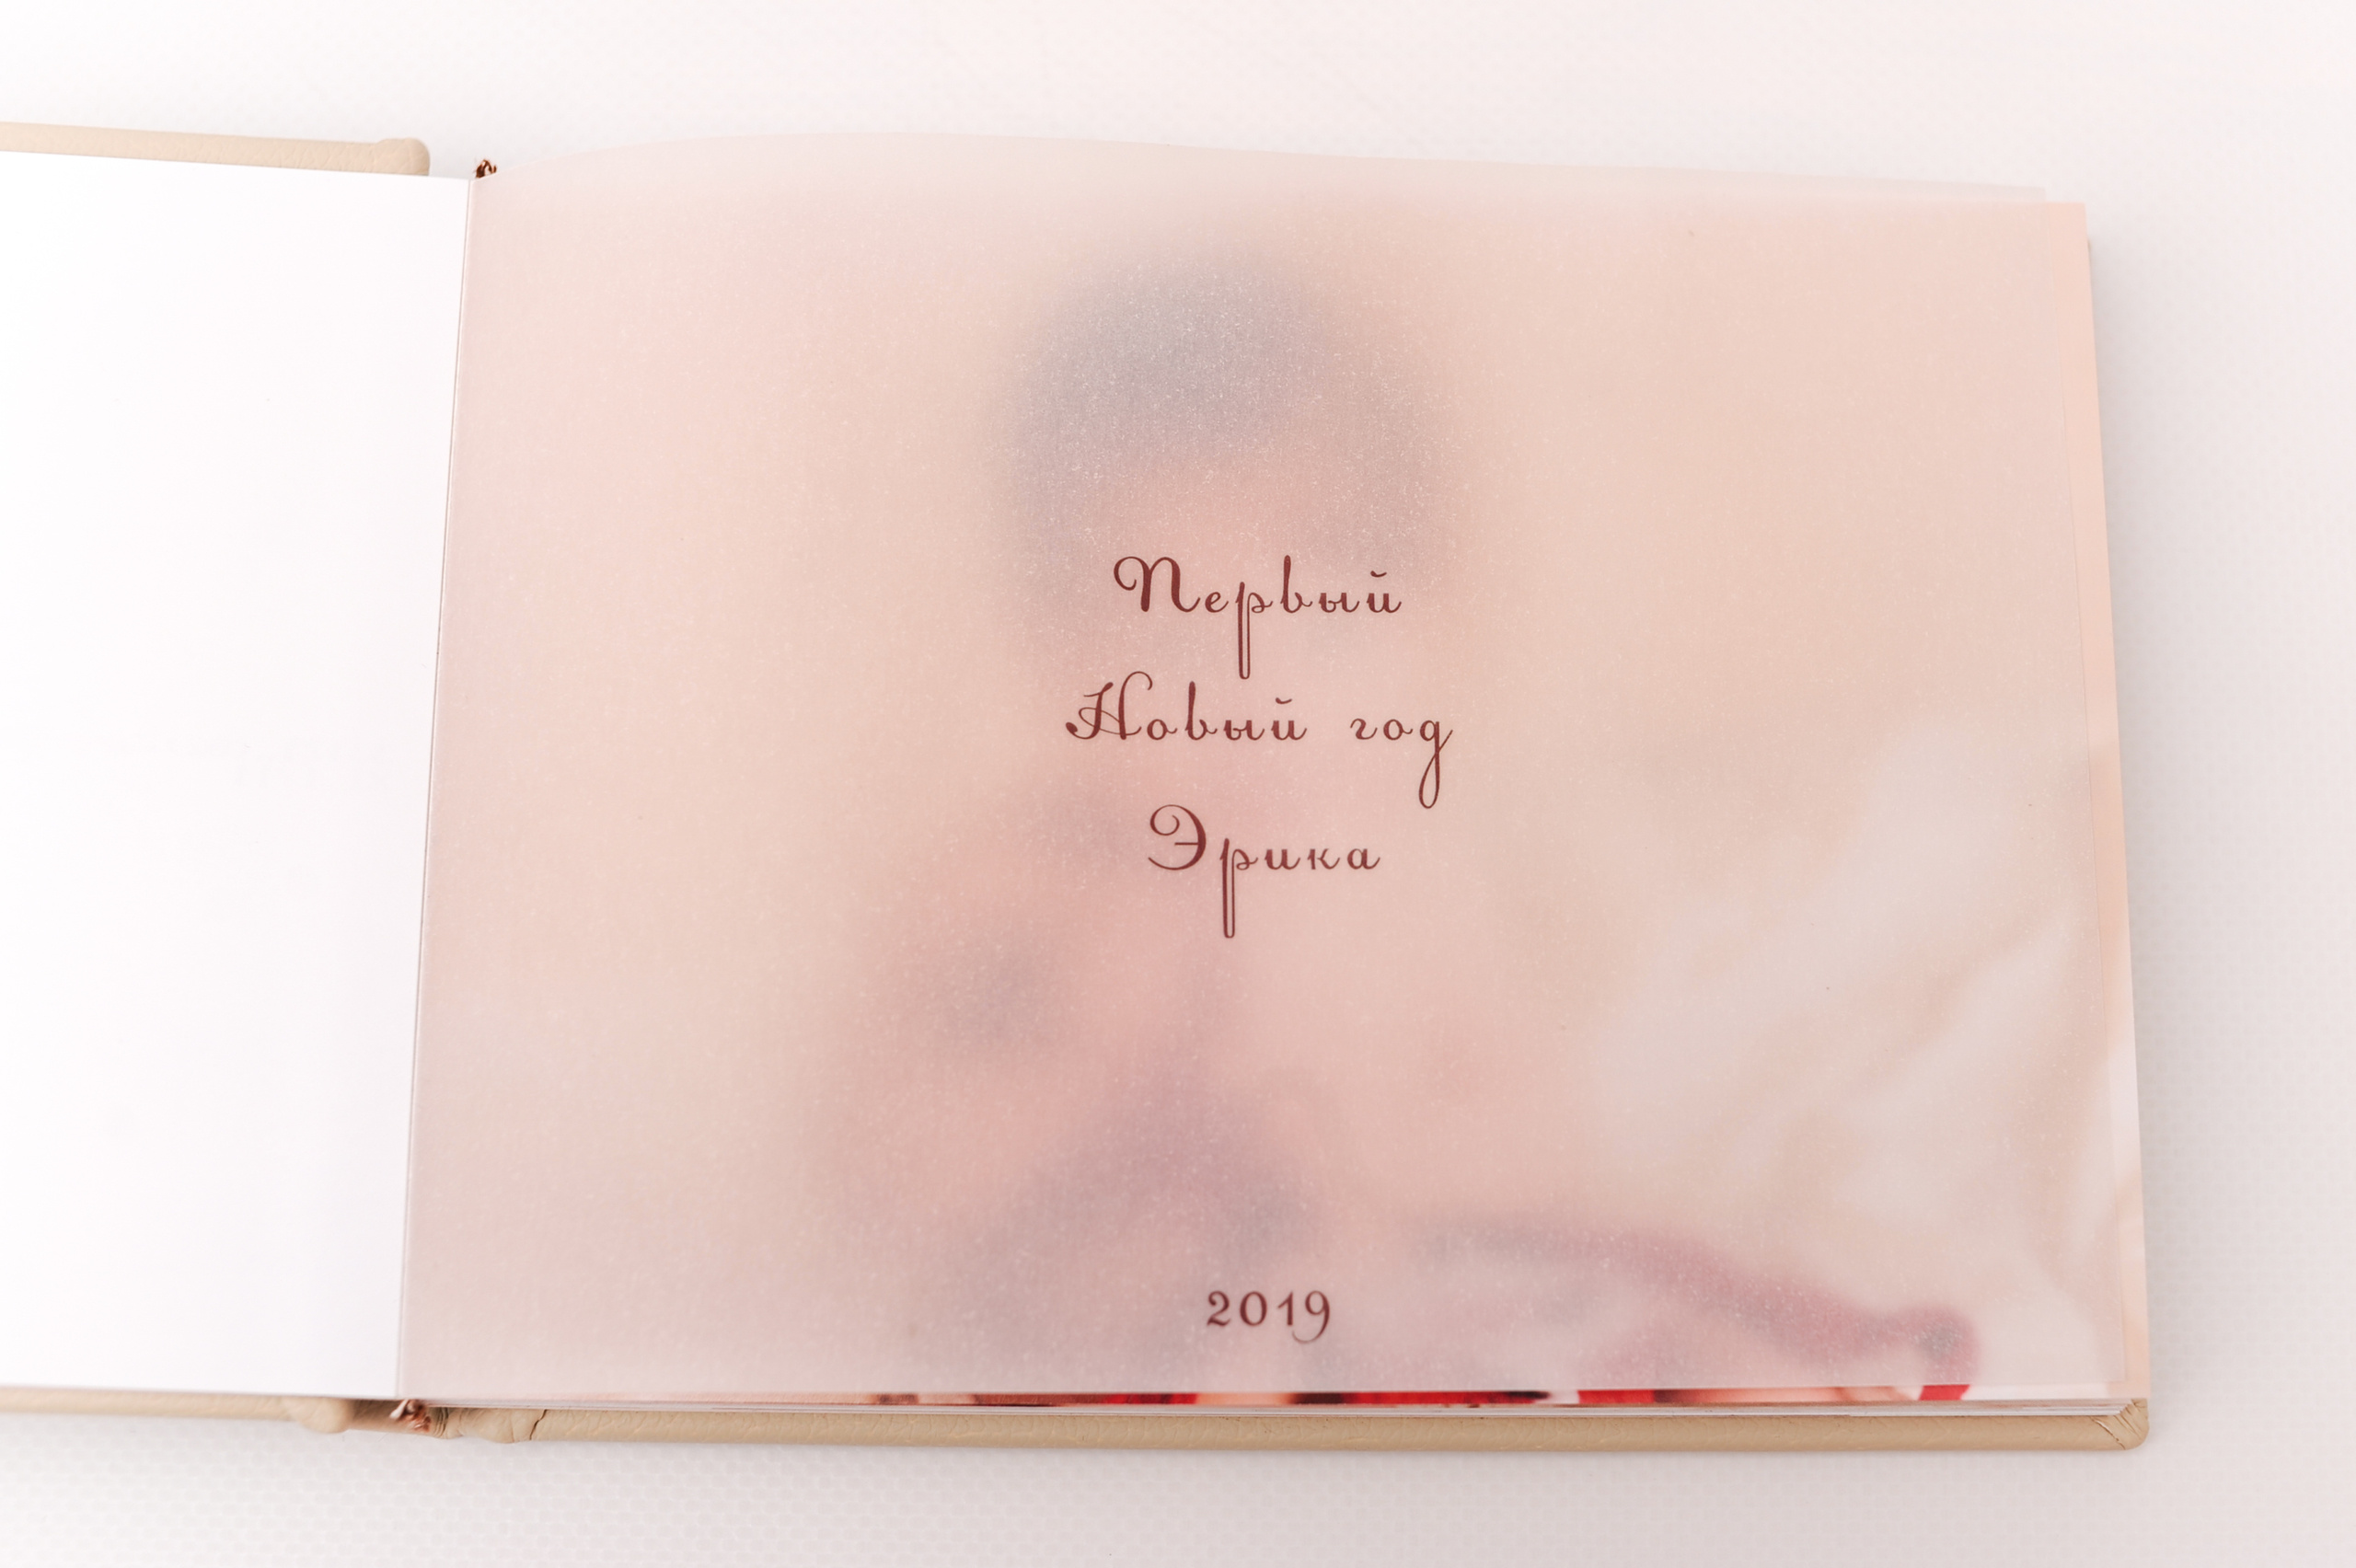 Первый
Новый год
Эрика
2019